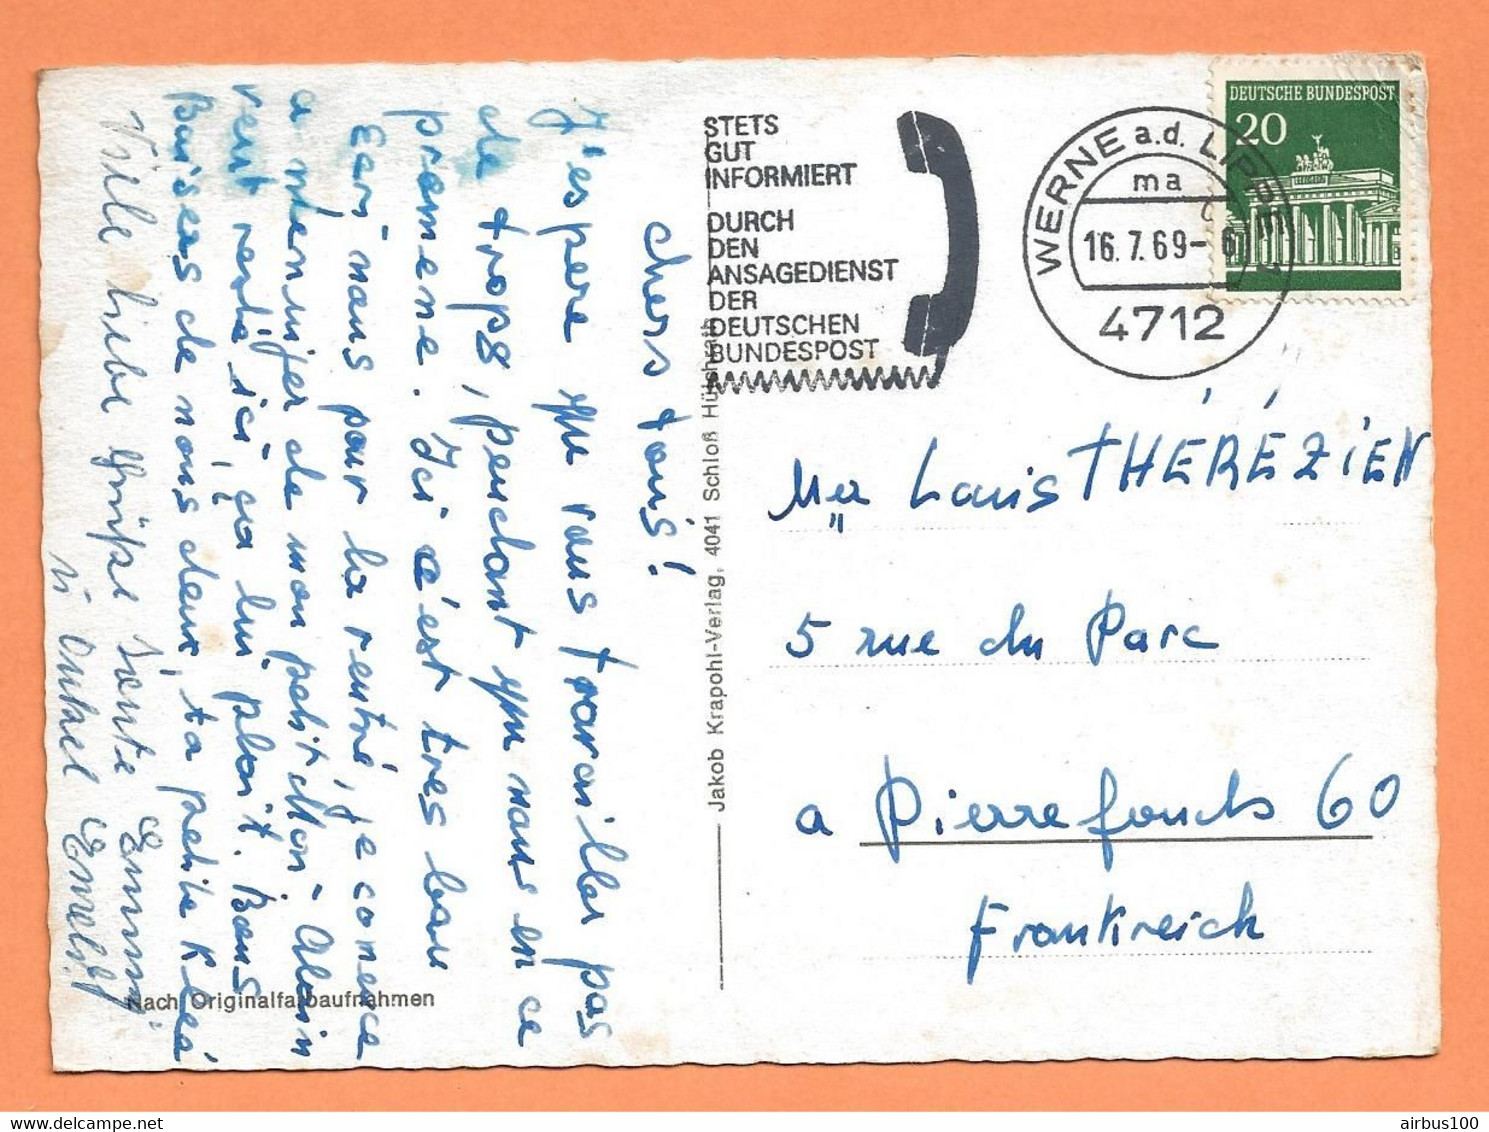 chers tous!
J'espere que vous travailler pas
de trops, pendant que nous en ce
promene. Ici c'est tres beau
Ecri nous pour la rentré, je comence
a m'ennuijer de mon petit Mon-Alain
veut resté ici, ça lui plait. Bons
Buisers de nous deux, ta petite Klea
Viele liebe Grüße Tante Emmy
u Onkel
Nach Originalfarbaufnahmen
Jakob Krapohl-Verlag, 4041 Schloß Hülchrath
STETS
GUT
INFORMIERT
DURCH
DEN
ANSAGEDIENST
DER
DEUTSCHEN
BUNDESPOST
WERNE a.d. LIPPE
ma
16.7.69-
4712
DEUTSCHE BUNDESPOST
20
Louis THÉRÉZIEN
5 rue du Parc
a Pierrefonds 60
Frankreich
airbus100